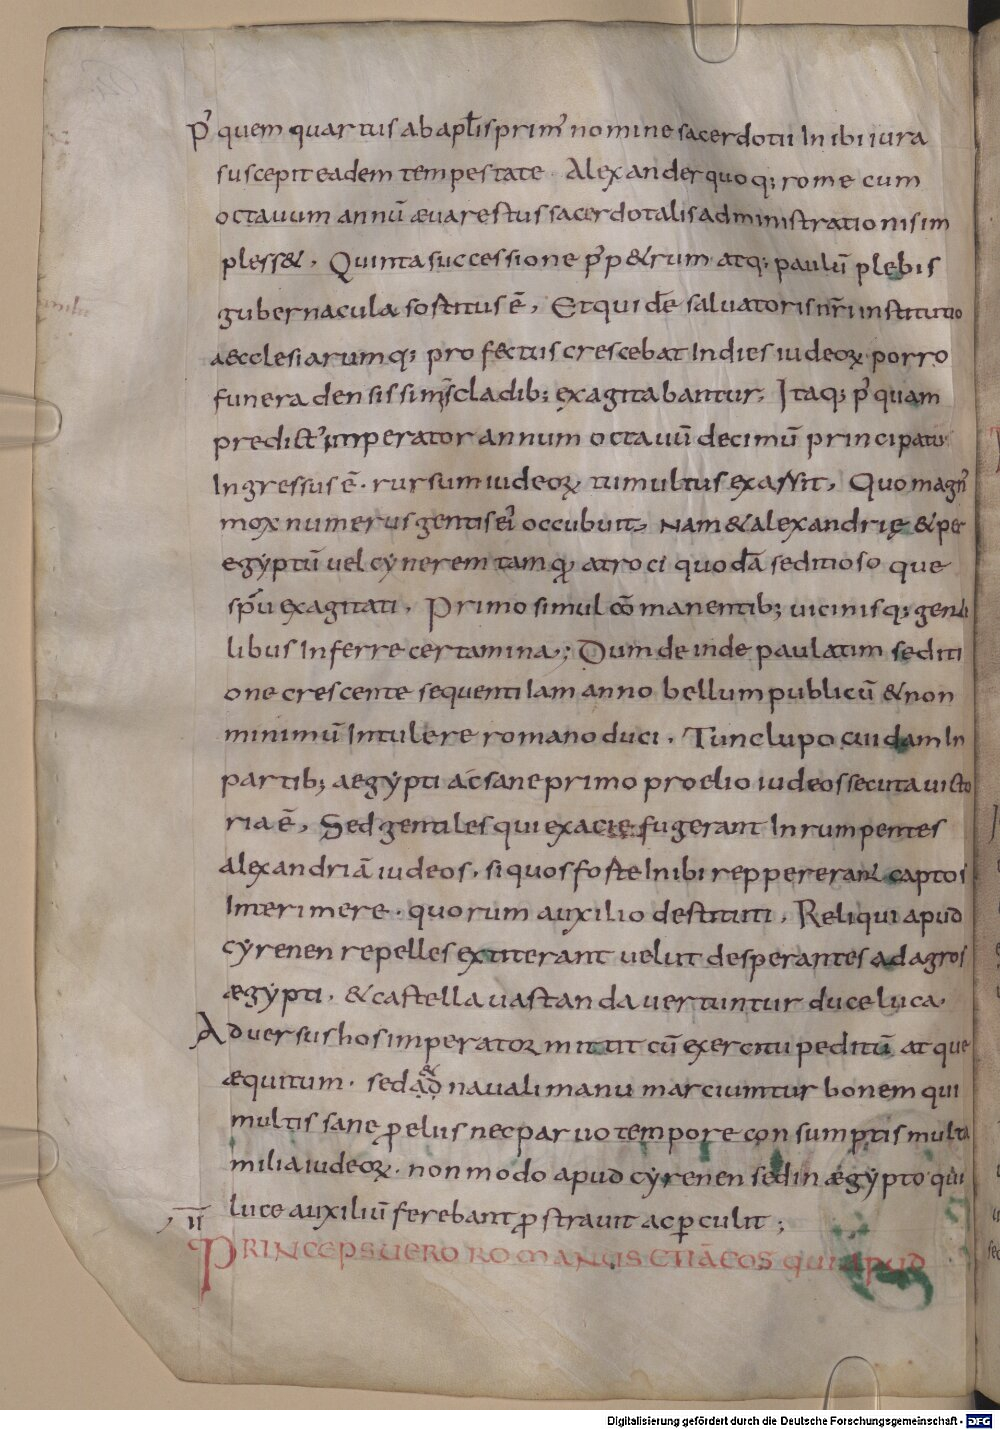 p̄ quem quartus ab apłis prim᾽ nomine sacerdotii Inibi iura
suscepit eadem tempestate · Alexander quoq; rome cum
octauum annū æuarestus sacerdotalis administrationis im
pless&, Quinta successione p᾽ p&rum atq; paulū plebis
gubernacula sostitus ē, Et quidē saluatoris nr̄i institutio
aecclesiarumq; profectus crescebat In dies iudeoꝝ porro
funera densissimis cladib; exagitabantur, Itaq; p᾽ quam
predict᾽ imperator annum octauū decimū principatus
Ingressus ē · rursum iudeoꝝ tumultus exarsit, Quo magn᾽
mox numerus gentis ei᾽ occubuit, Nam & alexandrię & per
egẏptū uel cẏnerem tamqꝫ atroci quodā seditioso que
sp̄u exagitati, Primo simul cōmanentib; uicinisq; genti
libus Inferre certamina,; Dum deinde paulatim sediti
one crescente sequenti Iam anno bellum publicū & non
minimū Intulere romano duci, Tunc lupo cuidam In
partib; aegẏpti ac sane primo proelio iudeos secuta uicto
ria ē, Sed gentiles qui ex acie fugerant Inrumpentes
alexandriā iudeos, si quos foste Inibi reppererant captos
Interimere · quorum auxilio destituti, Reliqui apud
cẏrenen repelles extiterant uelut desperantes ad agros
ægẏpti, & castella uastanda uertuntur duce luca,
Aduersus hos imperatoꝛ mittit cū exercitu peditū atque
&
æquitum · sed ad nauali manu marcium turbonem qui
multis sane ꝓeliis nec paruo tempore consumptis multa
milia iudeoꝝ · non modo apud cẏrenen sed in ægẏpto qui
luce auxiliū ferebant ꝓstrauit ac ꝑculit ;
, II
Princeps uero romanus etiā eos qui apud
Digitalisierung gefördert durch die Deutsche Forschungsgemeinschaft - DFG